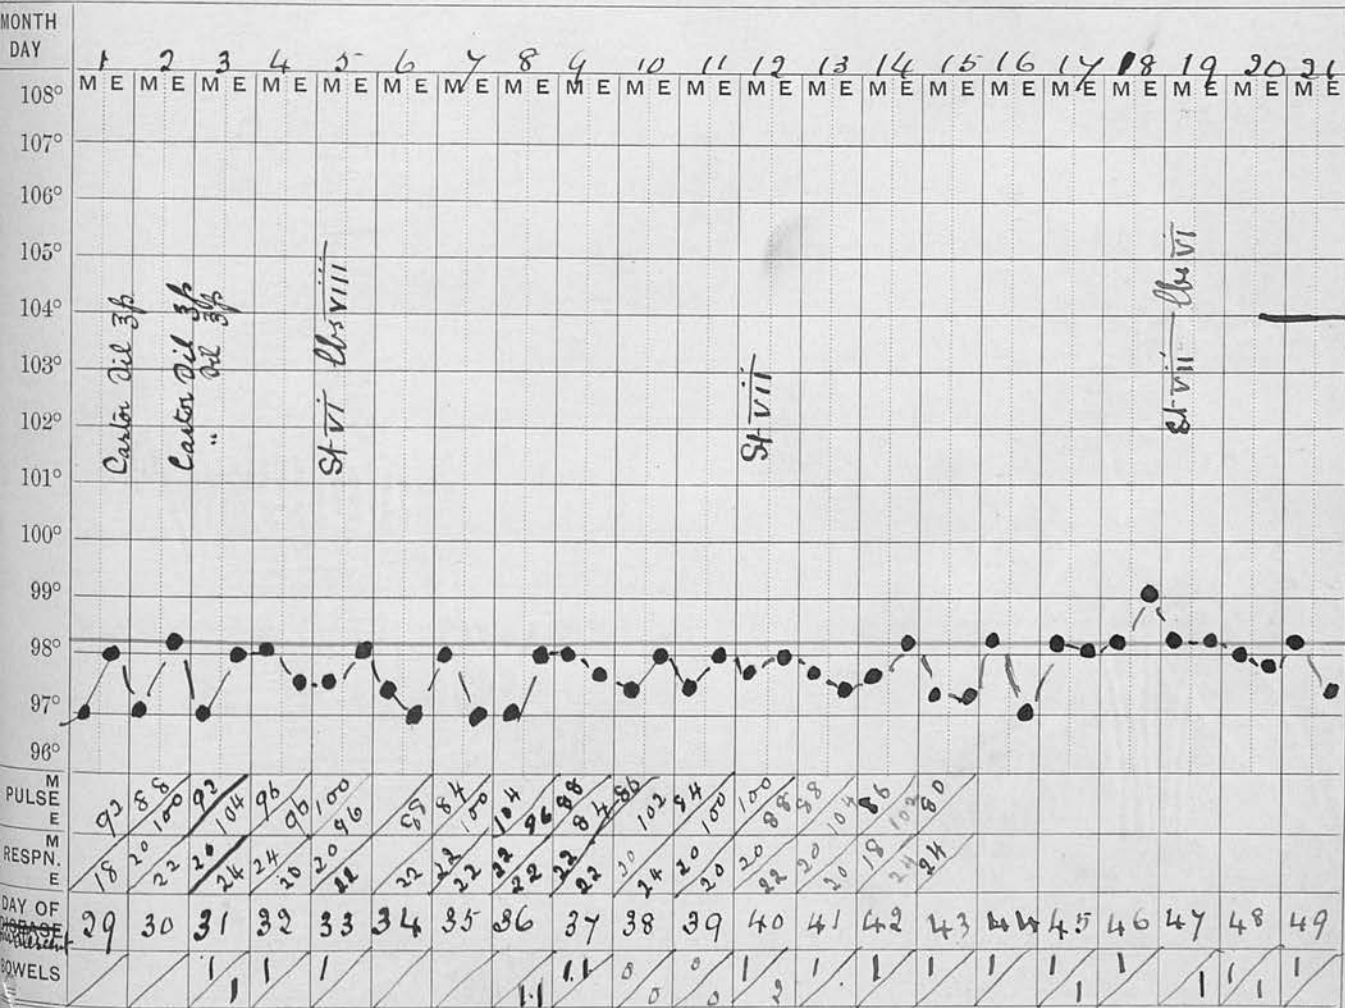 MONTH
DAY 1 2 3 4 5 6 7 8 9 10 11 12 13 14 15 16 17 18 19 20 21
M E M E M E M E M E M E M E M E M E M E M E M E M E M E M E M E M E M E M E M E M E
108°
107°
106°
105°
104°
103°
102°
101°
100°
99°
98°
97°
96°
Castor Oil ʒß
Castor Oil ʒß
" Oil ʒß
St vi lbs viii
St vii
St viii lbs vi
M
PULSE
E
92 88 100 92 104 96 96 100 96 88 84 100 104 96 88 84 86 102 84 100 100 88 88 104 86 102 80
M
RESPN.
E
18 20 22 20 24 24 20 20 22 22 22 22 22 22 22 22 20 24 20 20 20 22 20 20 18 24 24
DAY OF
DISEASE
29 30 31 32 33 34 35 36 37 38 39 40 41 42 43 44 45 46 47 48 49
BOWELS 1 1 1 1 1.1 1.1 0 0 0 0 1 2 1 . 1 1 1 1 1 1 1 1 1 1